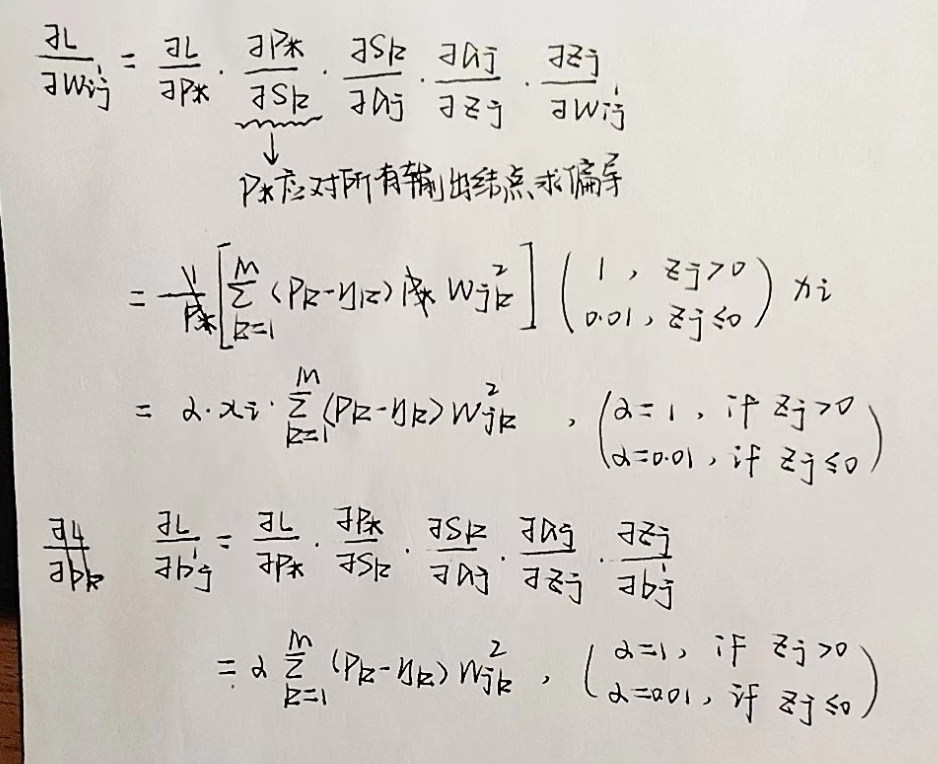 ∂L/∂W¹ij = ∂L/∂P* · ∂P*/∂Sk · ∂Sk/∂aj · ∂aj/∂zj · ∂zj/∂W¹ij
↓
P*应对所有输出结点求偏导
= 1/P* [ M∑k=1 (Pk-yk) P* W²jk ] ( 1, zj>0
0.01, zj≤0 ) xi
= α·xi· M∑k=1 (Pk-yk) W²jk , ( α=1, if zj>0
α=0.01, if zj≤0 )
∂L/∂bk ∂L/∂b¹j = ∂L/∂P* · ∂P*/∂Sk · ∂Sk/∂aj · ∂aj/∂zj · ∂zj/∂b¹j
= α M∑k=1 (Pk-yk) W²jk , ( α=1, if zj>0
α=0.01, if zj≤0 )